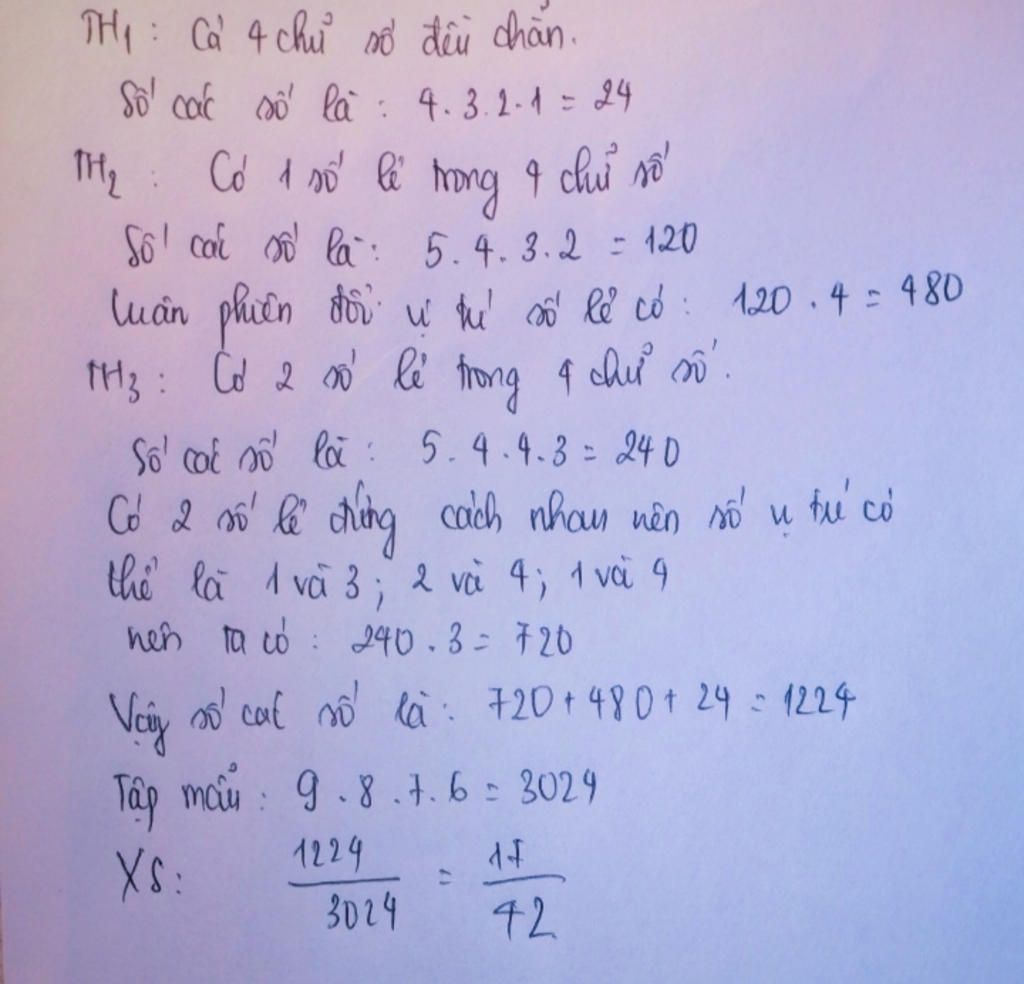 TH1 : Cả 4 chữ số đều chẵn.
Số các số là : 4.3.2.1 = 24
TH2 : Có 1 số lẻ trong 4 chữ số
Số các số là : 5.4.3.2 = 120
Luân phiên đổi vị trí số lẻ có : 120.4 = 480
TH3 : Có 2 số lẻ trong 4 chữ số.
Số các số là : 5.4.4.3 = 240
Có 2 số lẻ đứng cách nhau nên số vị trí có
thể là 1 và 3 ; 2 và 4 ; 1 và 4
nên ta có : 240.3 = 720
Vậy số các số là : 720 + 480 + 24 = 1224
Tập mẫu : 9.8.7.6 = 3024
XS : 1224/3024 = 17/42